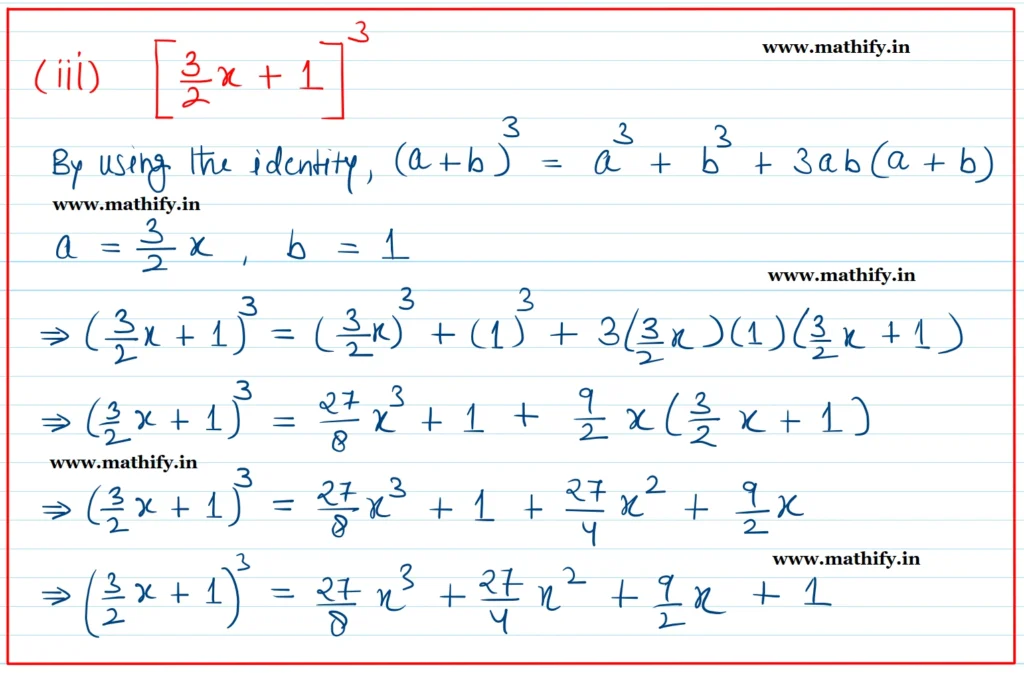 (iii) [3/2 x + 1]³
www.mathify.in
By using the identity, (a+b)³ = a³ + b³ + 3ab(a + b)
www.mathify.in
a = 3/2 x , b = 1
www.mathify.in
⇒ (3/2 x + 1)³ = (3/2 x)³ + (1)³ + 3(3/2 x)(1)(3/2 x + 1)
⇒ (3/2 x + 1)³ = 27/8 x³ + 1 + 9/2 x (3/2 x + 1)
www.mathify.in
⇒ (3/2 x + 1)³ = 27/8 x³ + 1 + 27/4 x² + 9/2 x
www.mathify.in
⇒ (3/2 x + 1)³ = 27/8 x³ + 27/4 x² + 9/2 x + 1